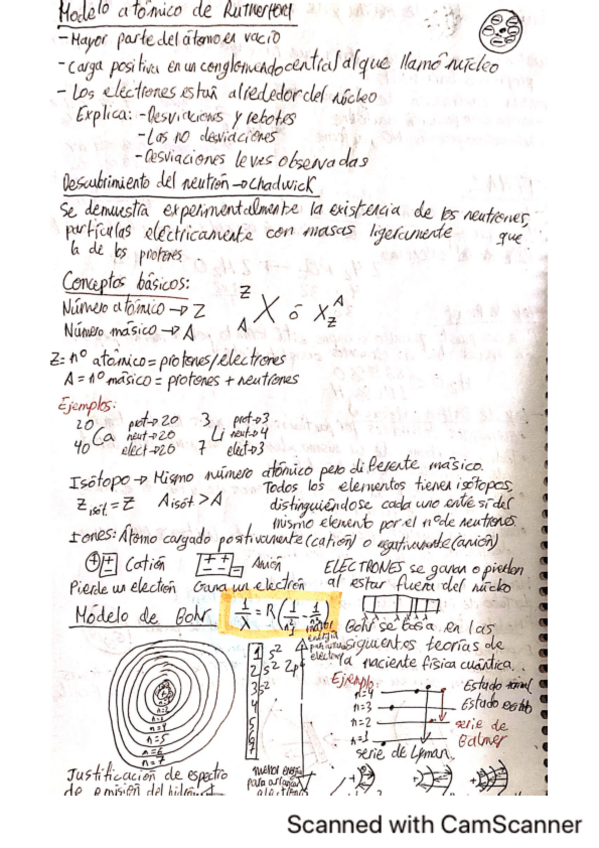 Modelo atómico de Rutherford
- Mayor parte del átomo en vacío
- Carga positiva en un conglomerado central al que llamó núcleo
- Los electrones están alrededor del núcleo
Explica: - Desviaciones y rebotes
- Las no desviaciones
- Desviaciones leves observadas
Descubrimiento del neutrón → Chadwick
Se demuestra experimentalmente la existencia de los neutrones,
partículas eléctricamente con masas ligeramente que
la de los protones.
Conceptos básicos:
Número atómico → Z
Número másico → A
Z A X ó X A Z
Z = nº atómico = protones/electrones
A = nº másico = protones + neutrones
Ejemplos:
20 40 Ca prot → 20 neut → 20 elect → 20
3 7 Li prot → 3 neut → 4 elect → 3
Isótopo → Mismo número atómico pero diferente másico.
Z isót = Z A isót > A
Todos los elementos tienen isótopos,
distinguiéndose cada uno entre sí del
mismo elemento por el nº de neutrones.
Iones: Átomo cargado positivamente (catión) o negativamente (anión)
Catión
Pierde un electrón
Anión
Gana un electrón
ELECTRONES se ganan o pierden
al estar fuera del núcleo
Módelo de Bohr
1/λ = R(1/n² - 1/n²)
Bohr se basa en las
siguientes teorías de
la naciente física cuántica.
n=4
n=5
n=6
n=7
1 s²
2 s² 2p⁶
3 s²
4
5
6
7
mayor
energía
menor energía
para arrancar
Ejemplo
n=4
n=3
n=2
n=1
Estado
Estado
serie de
Balmer
serie de Lyman
Justificación de espectro
de emisión del